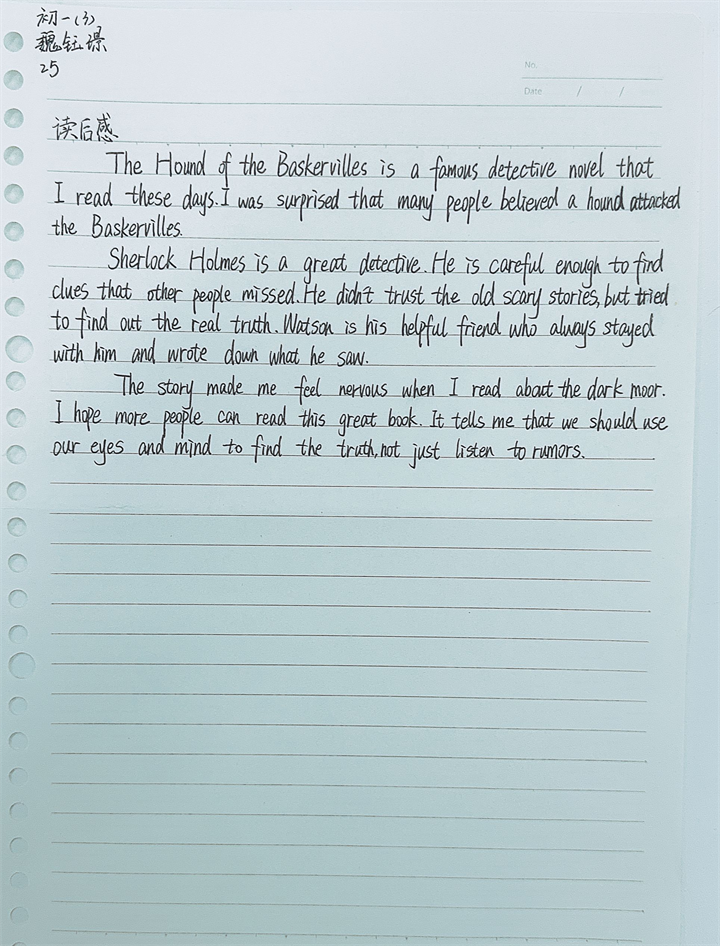 初一(3)
魏钰璟
25
No.
Date / /
读后感
The Hound of the Baskervilles is a famous detective novel that
I read these days. I was surprised that many people believed a hound attacked
the Baskervilles.
Sherlock Holmes is a great detective. He is careful enough to find
clues that other people missed. He didn't trust the old scary stories, but tried
to find out the real truth. Watson is his helpful friend who always stayed
with him and wrote down what he saw.
The story made me feel nervous when I read about the dark moor.
I hope more people can read this great book. It tells me that we should use
our eyes and mind to find the truth, not just listen to rumors.